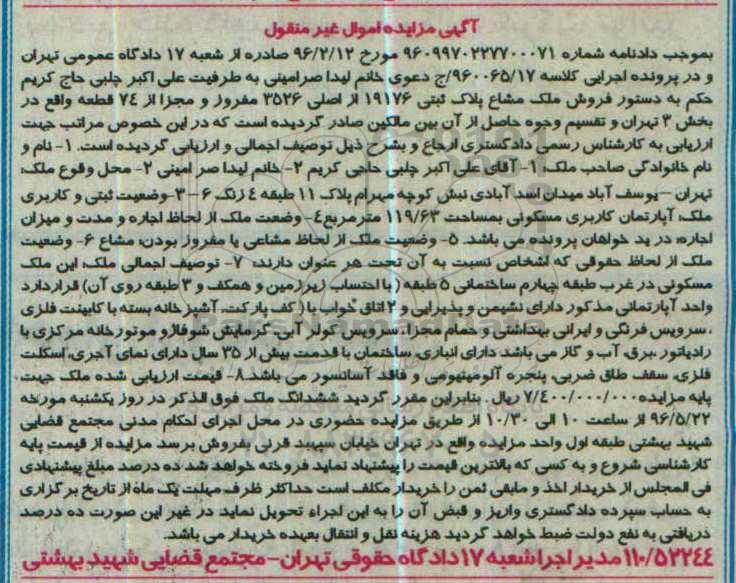 آگهی مزایده اموال غیر منقول
بموجب دادنامه شماره ۹۶۰۹۹۷۰۲۲۷۷۰۰۰۷۱ مورخ ۹۶/۲/۱۲ صادره از شعبه ۱۷ دادگاه عمومی تهران
و در پرونده اجرایی کلاسه ۹۶۰۰۶۵/۱۷/ج دعوی خانم لیدا صرامینی به طرفیت علی اکبر چلبی حاج کریم
حکم به دستور فروش ملک مشاع پلاک ثبتی ۱۹۱۷۶ از اصلی ۳۵۲۶ مفروز و مجزا از ۷۴ قطعه واقع در
بخش ۳ تهران و تقسیم وجوه حاصل از آن بین مالکین صادر گردیده است که در این خصوص مراتب جهت
ارزیابی به کارشناس رسمی دادگستری ارجاع و بشرح ذیل توصیف اجمالی و ارزیابی گردیده است. ۱- نام و
نام خانوادگی صاحب ملک: ۱- آقای علی اکبر چلبی حاجی کریم ۲- خانم لیدا صر امینی ۲- محل وقوع ملک:
تهران –یوسف آباد میدان اسد آبادی نبش کوچه مهرام پلاک ۱۱ طبقه ۴ زنگ ۶ –۳-وضعیت ثبتی و کاربری
ملک: آپارتمان کاربری مسکونی بمساحت ۱۱۹/۶۳ مترمربع۴- وضعت ملک از لحاظ اجاره و مدت و میزان
اجاره: در ید خواهان پرونده می باشد. ۵- وضعیت ملک از لحاظ مشاعی یا مفروز بودن: مشاع ۶- وضعیت
ملک از لحاظ حقوقی که اشخاص نسبت به آن تحت هر عنوان دارند: ۷- توصیف اجمالی ملک: این ملک
مسکونی در غرب طبقه چهارم ساختمانی ۵ طبقه ( با احتساب زیرزمین و همکف و ۳ طبقه روی آن) قراردارد
واحد آپارتمانی مذکور دارای نشیمن و پذیرایی و ۲ اتاق خواب با کف پارکت، آشپزخانه بسته با کابینت فلزی
، سرویس فرنگی و ایرانی بهداشتی و حمام مجزا، سرویس کولر آبی، گرمایش شوفاژ و موتورخانه مرکزی با
رادیاتور، برق، آب و گاز می باشد دارای انباری، ساختمان با قدمت بیش از ۳۵ سال دارای نمای آجری، اسکلت
فلزی، سقف طاق ضربی، پنجره آلومینیومی و فاقد آسانسور می باشد.۸- قیمت ارزیابی شده ملک جهت
پایه مزایده۷/۴۰۰/۰۰۰/۰۰۰ ریال. بنابراین مقرر گردید ششدانگ ملک فوق الذکر در روز یکشنبه مورخه
۹۶/۵/۲۲ از ساعت ۱۰ الی ۱۰/۳۰ از طریق مزایده حضوری در محل اجرای احکام مدنی مجتمع قضایی
شهید بهشتی طبقه اول واحد مزایده واقع در تهران خیابان سپهبد قرنی بفروش برسد مزایده از قیمت پایه
کارشناسی شروع و به کسی که بالاترین قیمت را پیشنهاد نماید فروخته خواهد شد ده درصد مبلغ پیشنهادی
فی المجلس از خریدار اخذ و مابقی ثمن را خریدار مکلف است حداکثر ظرف مهلت یک ماه از تاریخ برگزاری
به حساب سپرده دادگستری واریز و قبض آن را به این اجراء تحویل نماید در غیر این صورت ده درصد
دریافتی به نفع دولت ضبط خواهد گردید هزینه نقل و انتقال بعهده خریدار می باشد.
۱۱۰/۵۲۲۴۴ مدیر اجرا شعبه ۱۷ دادگاه حقوقی تهران – مجتمع قضایی شهید بهشتی